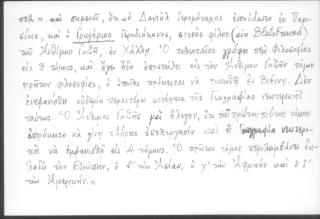 σθαι" καὶ σημειοῖ, ὅτι κὁ Δανιὴλ Ἱερομόναχος ἐσπούδασεν ἐν Παρι-
σίοις, καὶ ὁ Γρηγόριος Ἱεροδιάκονος, στενὸς φίλος (ein Blutsfreund)
τοῦ Ἀνθίμου Γαζῆ, ἐν Χάλλῃ. Ὁ τελευταῖος γράφει περὶ Φιλοσοφίας
εἰς 3 τόμους, καὶ ἔχει ἤδη ἀποστείλει εἰς τὸν Ἄνθιμον Γαζῆν τόμον
πρῶτον φιλοσοφίας, ὁ ὁποῖος πρόκειται νὰ τυπωθῇ ἐν Βιέννῃ. Δὲν
ἐνεφανίσθη οὐδεμία περαιτέρω συνέχεια τῆς Γεωγραφίας νεωτερικῆς
ταύτης. Ὁ Ἄνθιμος Γαζῆς μοὶ ἔλεγεν, ὅτι τοῦ πρώτου τούτου τόμου
ἐπρόκειτο νὰ γίνῃ πλήρης ἐπεξεργασία καὶ ἡ Γεωγραφία νεωτερι-
κὴ νὰ ἐμφανισθῇ εἰς 4 τόμους. Ὁ πρῶτος τόμος περιλαμβάνει ὁλό-
κληρον τὴν Εὐρώπην, ὁ β΄ τὴν Ἀσίαν, ὁ γ΄ τὴν Ἀφρικὴν καὶ ὁ δ΄
τὴν Ἀμερικήν."